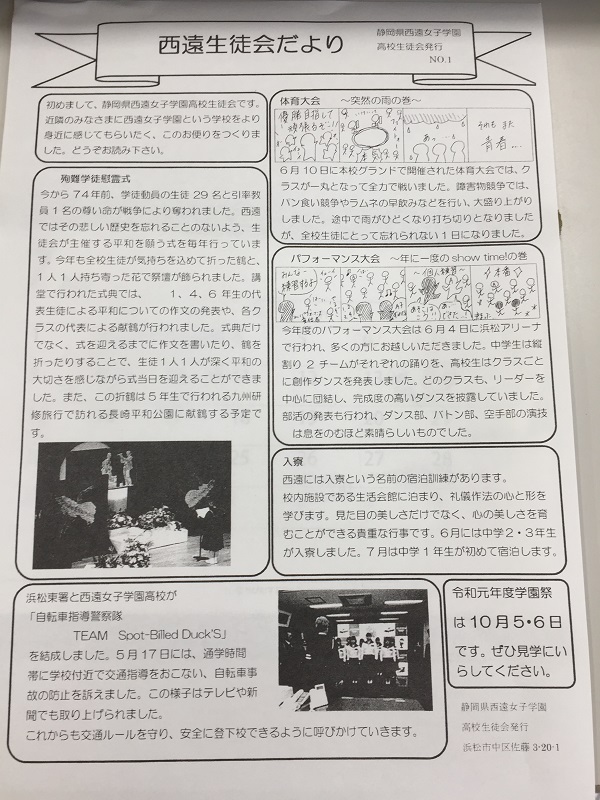 西遠生徒会だより
静岡県西遠女子学園
高校生徒会発行
NO.1
初めまして、静岡県西遠女子学園高校生徒会です。
近隣のみなさまに西遠女子学園という学校をより
身近に感じてもらいたく、このお便りをつくりまし
た。どうぞお読み下さい。
殉難学徒慰霊式
今から74年前、学徒動員の生徒29名と引率教
員1名の尊い命が戦争により奪われました。西遠
ではその悲しい歴史を忘れることのないよう、生
徒会が主催する平和を願う式を毎年行っていま
す。今年も全校生徒が気持ちを込めて折った鶴と、
1人1人持ち寄った花で祭壇が飾られました。講
堂で行われた式典では、 1、4、6年生の代
表生徒による平和についての作文の発表や、各ク
ラスの代表による献鶴が行われました。式典だけ
でなく、式を迎えるまでに作文を書いたり、鶴を
折ったりすることで、生徒1人1人が深く平和の
大切さを感じながら式当日を迎えることができま
した。また、この折鶴は5年生で行われる九州研
修旅行で訪れる長崎平和公園に献鶴する予定で
す。
体育大会 ～突然の雨の巻～
優勝目指して
頑張るぞー!!
あっ…
それもまた
青春…
6月10日に本校グランドで開催された体育大会では、ク
ラスが一丸となって全力で戦いました。障害物競争では、
パン食い競争やラムネの早飲みなどを行い、大盛り上がり
しました。途中で雨がひどくなり打ち切りとなりました
が、全校生徒にとって忘れられない1日になりました。
パフォーマンス大会 ～年に一度のshow time!の巻
みんなで
練習
～個人練習～
本番
今年度のパフォーマンス大会は6月4日に浜松アリーナ
で行われ、多くの方にお越しいただきました。中学生は縦
割り2チームがそれぞれの踊りを、高校生はクラスごと
に創作ダンスを発表しました。どのクラスも、リーダーを
中心に団結し、完成度の高いダンスを披露していました。
部活の発表も行われ、ダンス部、バトン部、空手部の演技
は息をのむほど素晴らしいものでした。
入寮
西遠には入寮という名前の宿泊訓練があります。
校内施設である生活会館に泊まり、礼儀作法の心と形を
学びます。見た目の美しさだけでなく、心の美しさを育
むことができる貴重な行事です。6月には中学2・3年生
が入寮しました。7月は中学1年生が初めて宿泊します。
浜松東署と西遠女子学園高校が
「自転車指導警察隊
TEAM Spot-Billed Duck'S」
を結成しました。5月17日には、通学時間
帯に学校付近で交通指導をおこない、自転車事
故の防止を訴えました。この様子はテレビや新
聞でも取り上げられました。
これからも交通ルールを守り、安全に登下校できるように呼びかけていきます。
令和元年度学園祭
は10月5・6日
です。ぜひ見学にい
らしてください。
静岡県西遠女子学園
高校生徒会発行
浜松市中区佐藤3-20-1